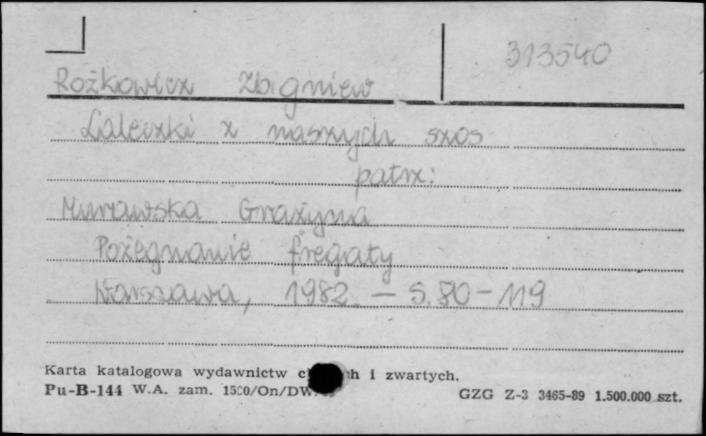 313540
Rożkowicz Zbigniew
Laleczki z naszych szos
patrz:
Murawska Grażyna
Pożegnanie fregaty
Warszawa, 1982. - S. 80-119
Karta katalogowa wydawnictw i zwartych.
Pu-B-144 W.A. zam. GZG Z-3 3465-89 1.500.000 szt.